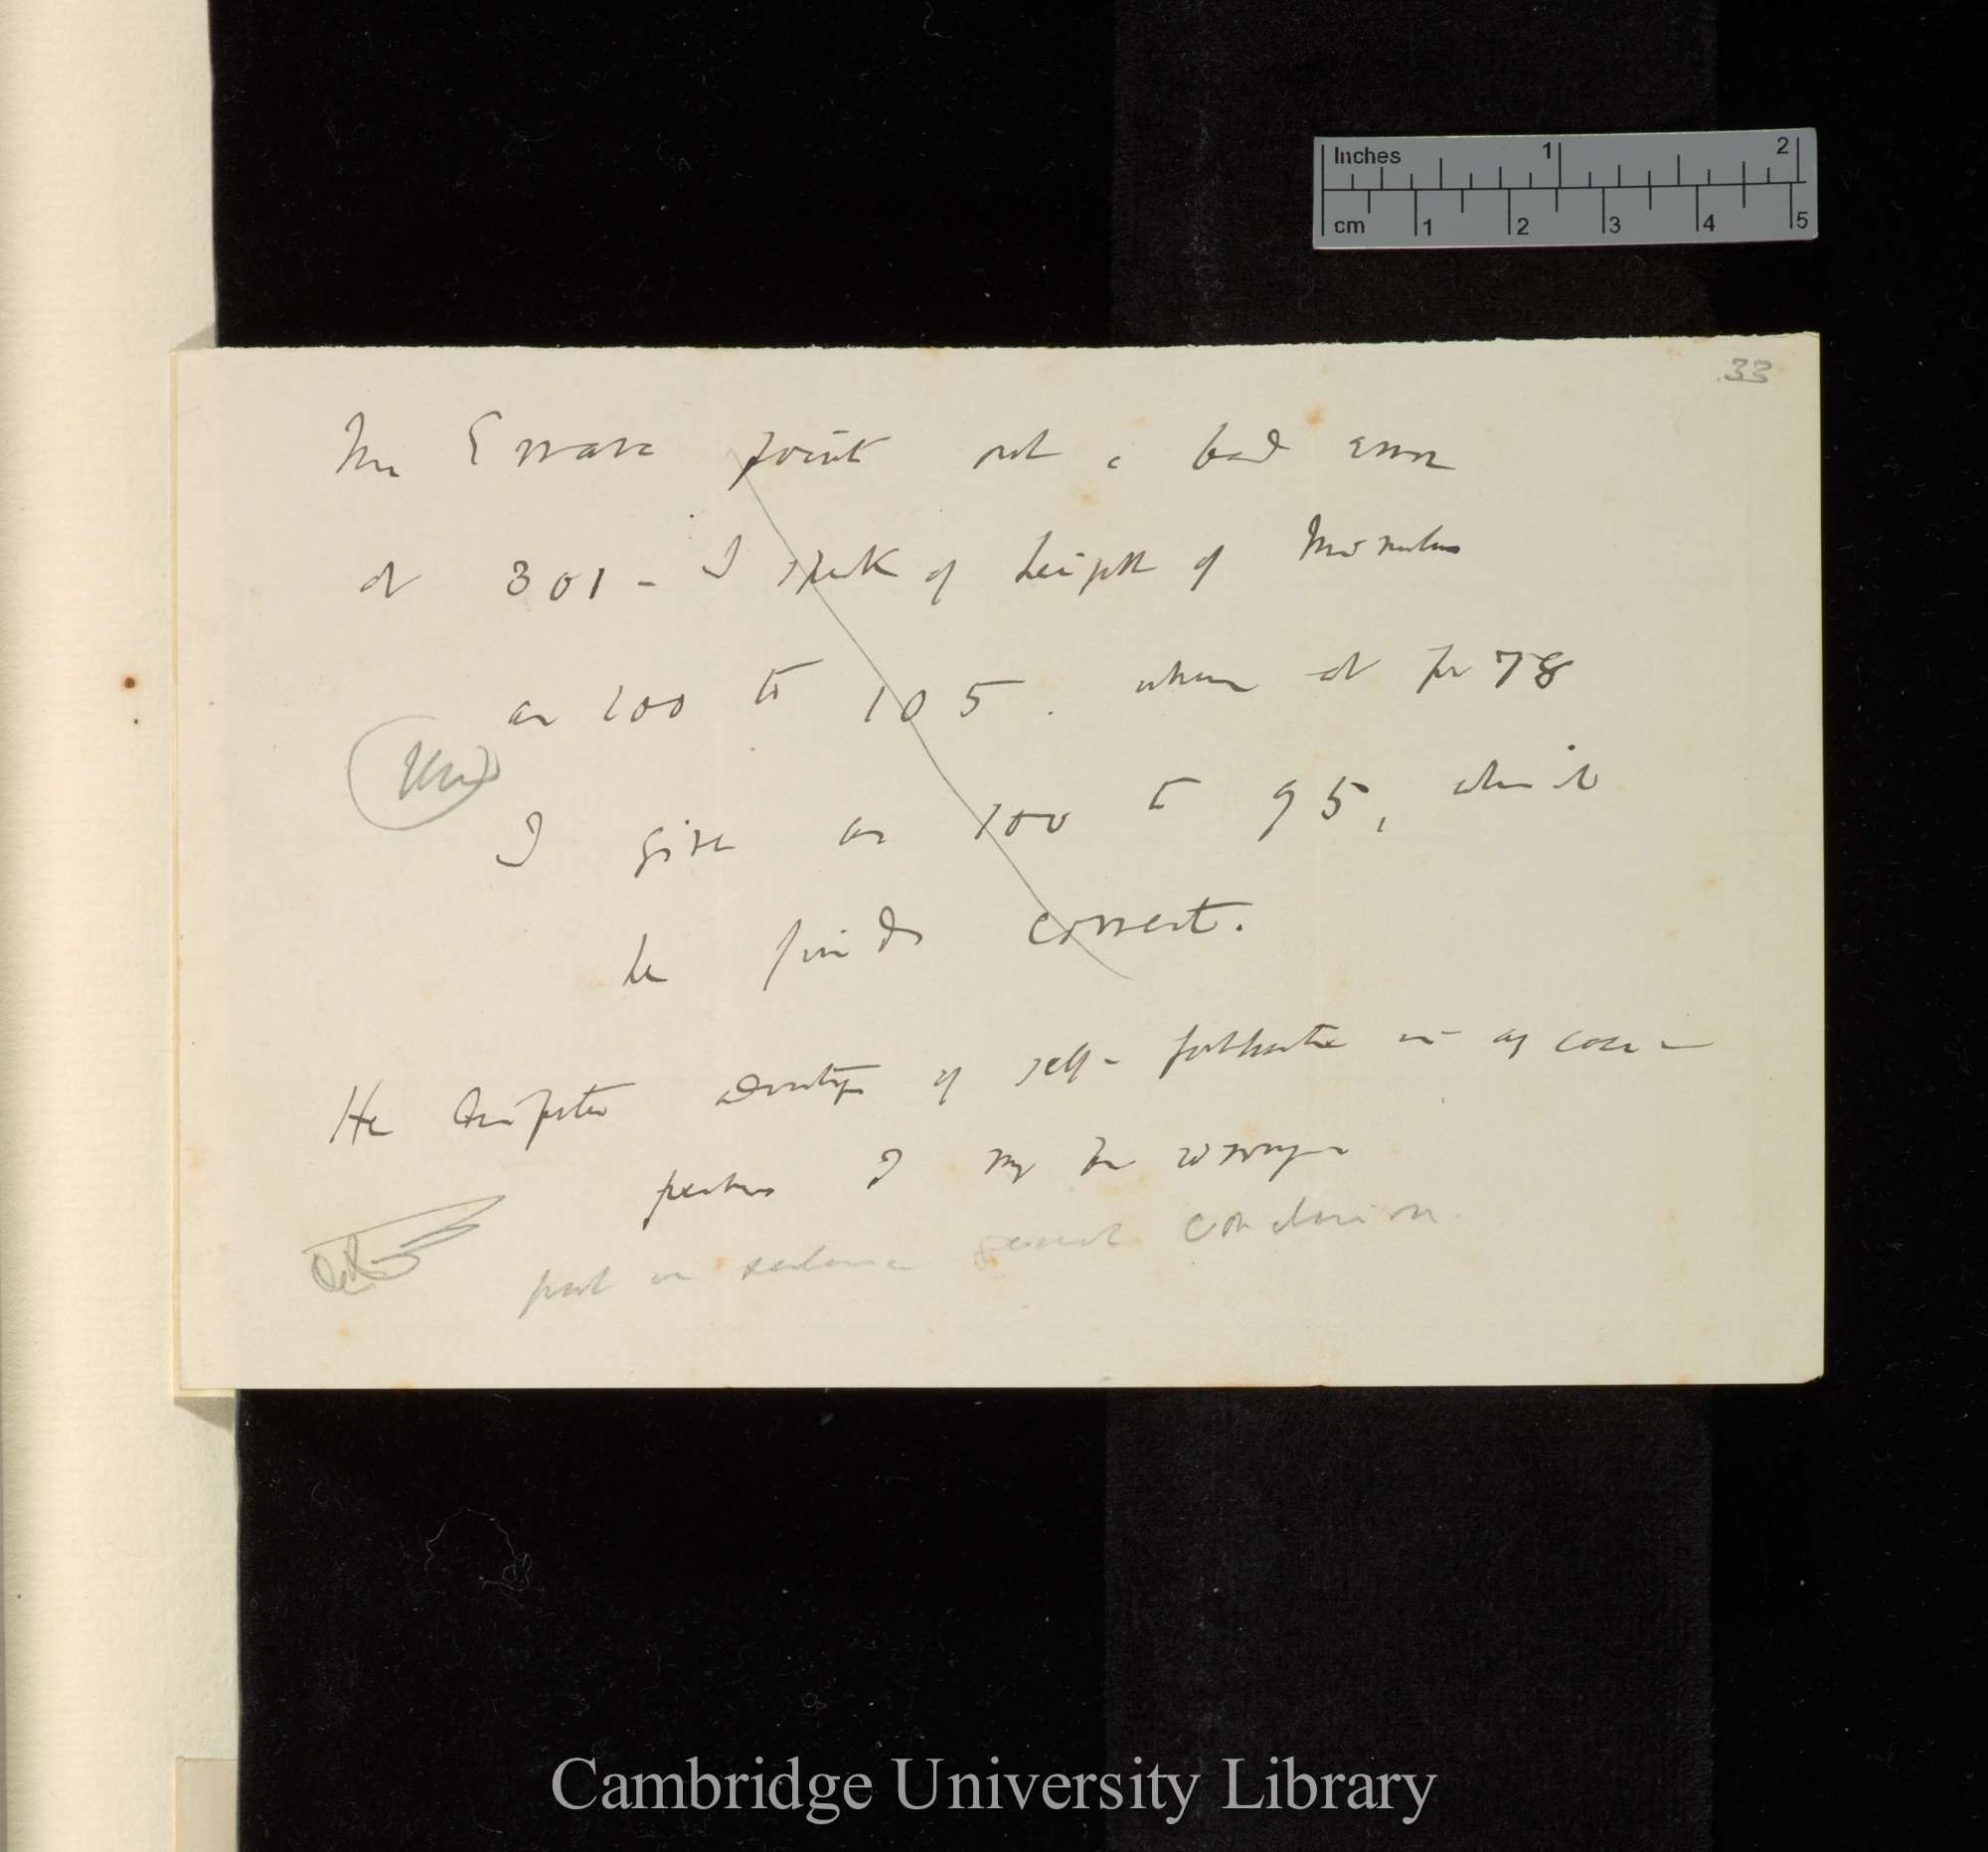 Inches 1 2
cm 1 2 3 4 5
33
Mr Errara points out a bad error
at 301 - I speak of height of Mimulus
as 100 to 105. when at p 78
I give as 100 to 95, which
he finds correct.
He disputes advantage of self-fertilisation in any case -
perhaps I may be wrong -
put in general conclusion
Cambridge University Library